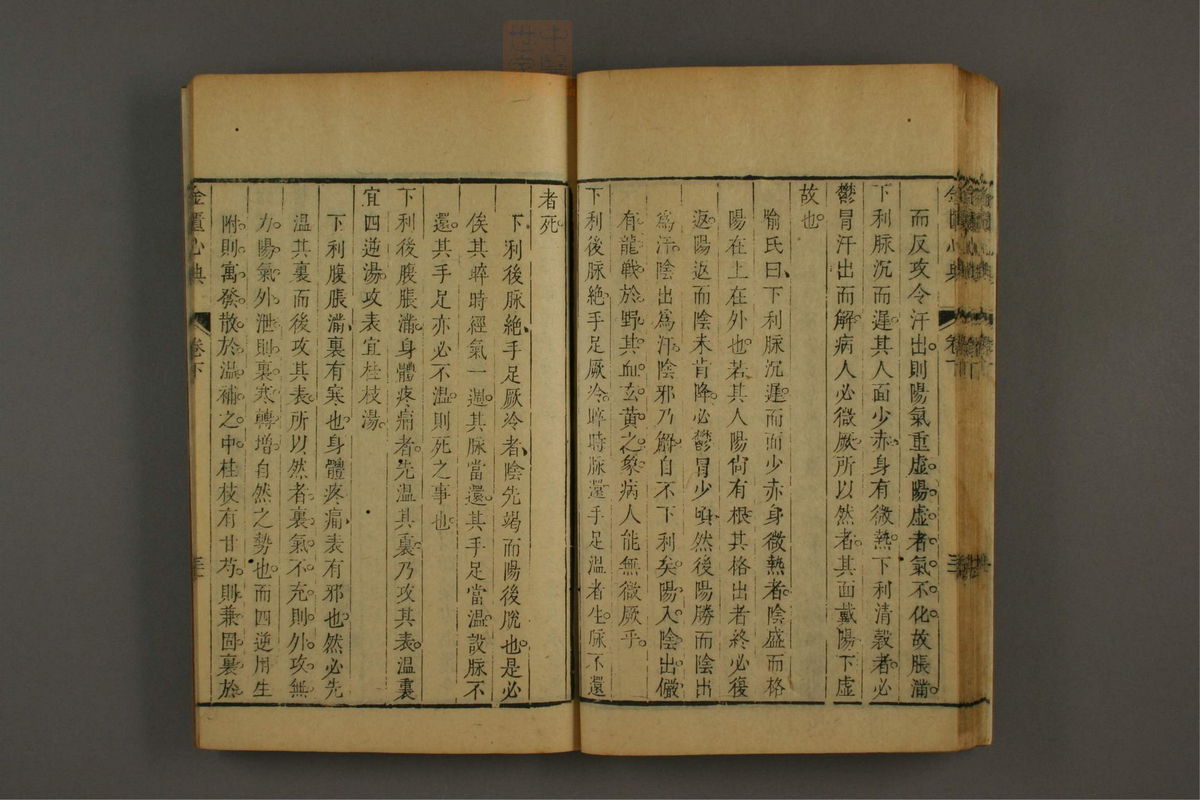 而反攻令汗出。則陽氣重虛。陽虛者氣不化。故脹滿。
下利脉沉而遲。其人面少赤。身有微熱。下利清穀者。必
鬱冒汗出而解。病人必微厥。所以然者。其面戴陽。下虛
故也。
喻氏曰、下利脉沉遲。而面少赤。身微熱者。陰盛而格
陽在上在外也。若其人陽尙有根。其格出者終必復
返。陽返而陰未肯降。必鬱冒少頃。然後陽勝而陰出
爲汗。陰出爲汗。陰邪乃解。自不下利矣。陽入陰出。儼
有龍戰於野。其血玄黃之象。病人能無微厥乎。
下利後脉絶。手足厥冷。晬時脉還。手足溫者生。脉不還
者死。
下利後脉絶、手足厥冷者、陰先竭而陽後脫也。是必
俟其晬時經氣一週。其脉當還。其手足當溫。設脉不
還。其手足亦必不溫。則死之事也。
下利後腹脹滿。身體疼痛者。先溫其裏。乃攻其表。溫裏
宜四逆湯。攻表宜桂枝湯。
下利腹脹滿、裏有寒也。身體疼痛、表有邪也。然必先
溫其裏而後攻其表。所以然者。裏氣不充。則外攻無
力。陽氣外泄。則裏寒轉增。自然之勢也。而四逆用生
附。則寓發散於溫補之中。桂枝有甘芍。則兼固裏於
金匱心典
卷下